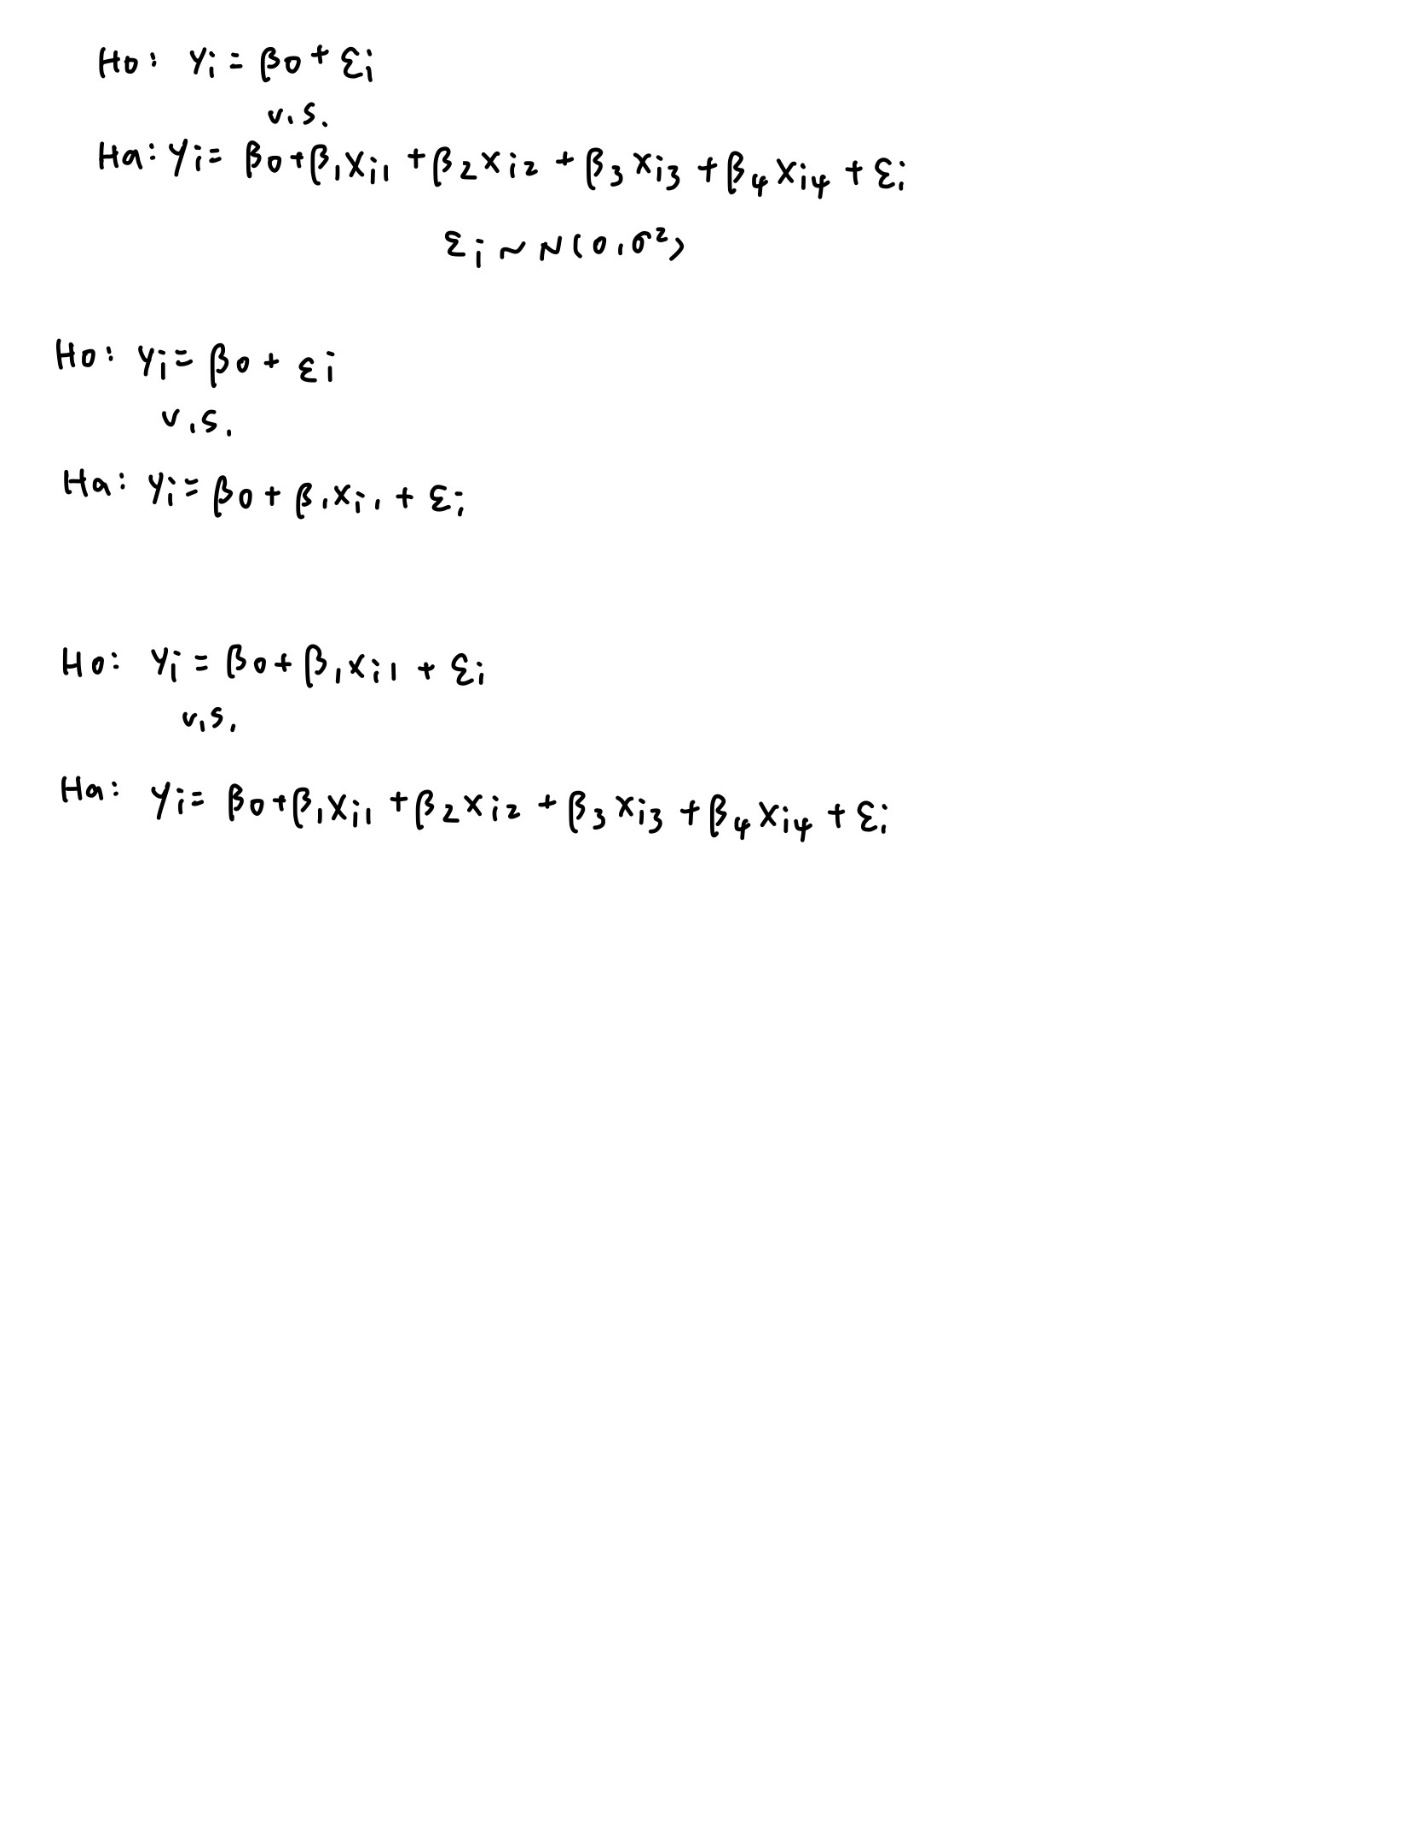 H0: yi = β0 + εi
v.s.
Ha: yi = β0 + β1xi1 + β2xi2 + β3xi3 + β4xi4 + εi
εi ~ N(0, σ²)
H0: yi = β0 + εi
v.s.
Ha: yi = β0 + β1xi1 + εi
H0: yi = β0 + β1xi1 + εi
v.s.
Ha: yi = β0 + β1xi1 + β2xi2 + β3xi3 + β4xi4 + εi